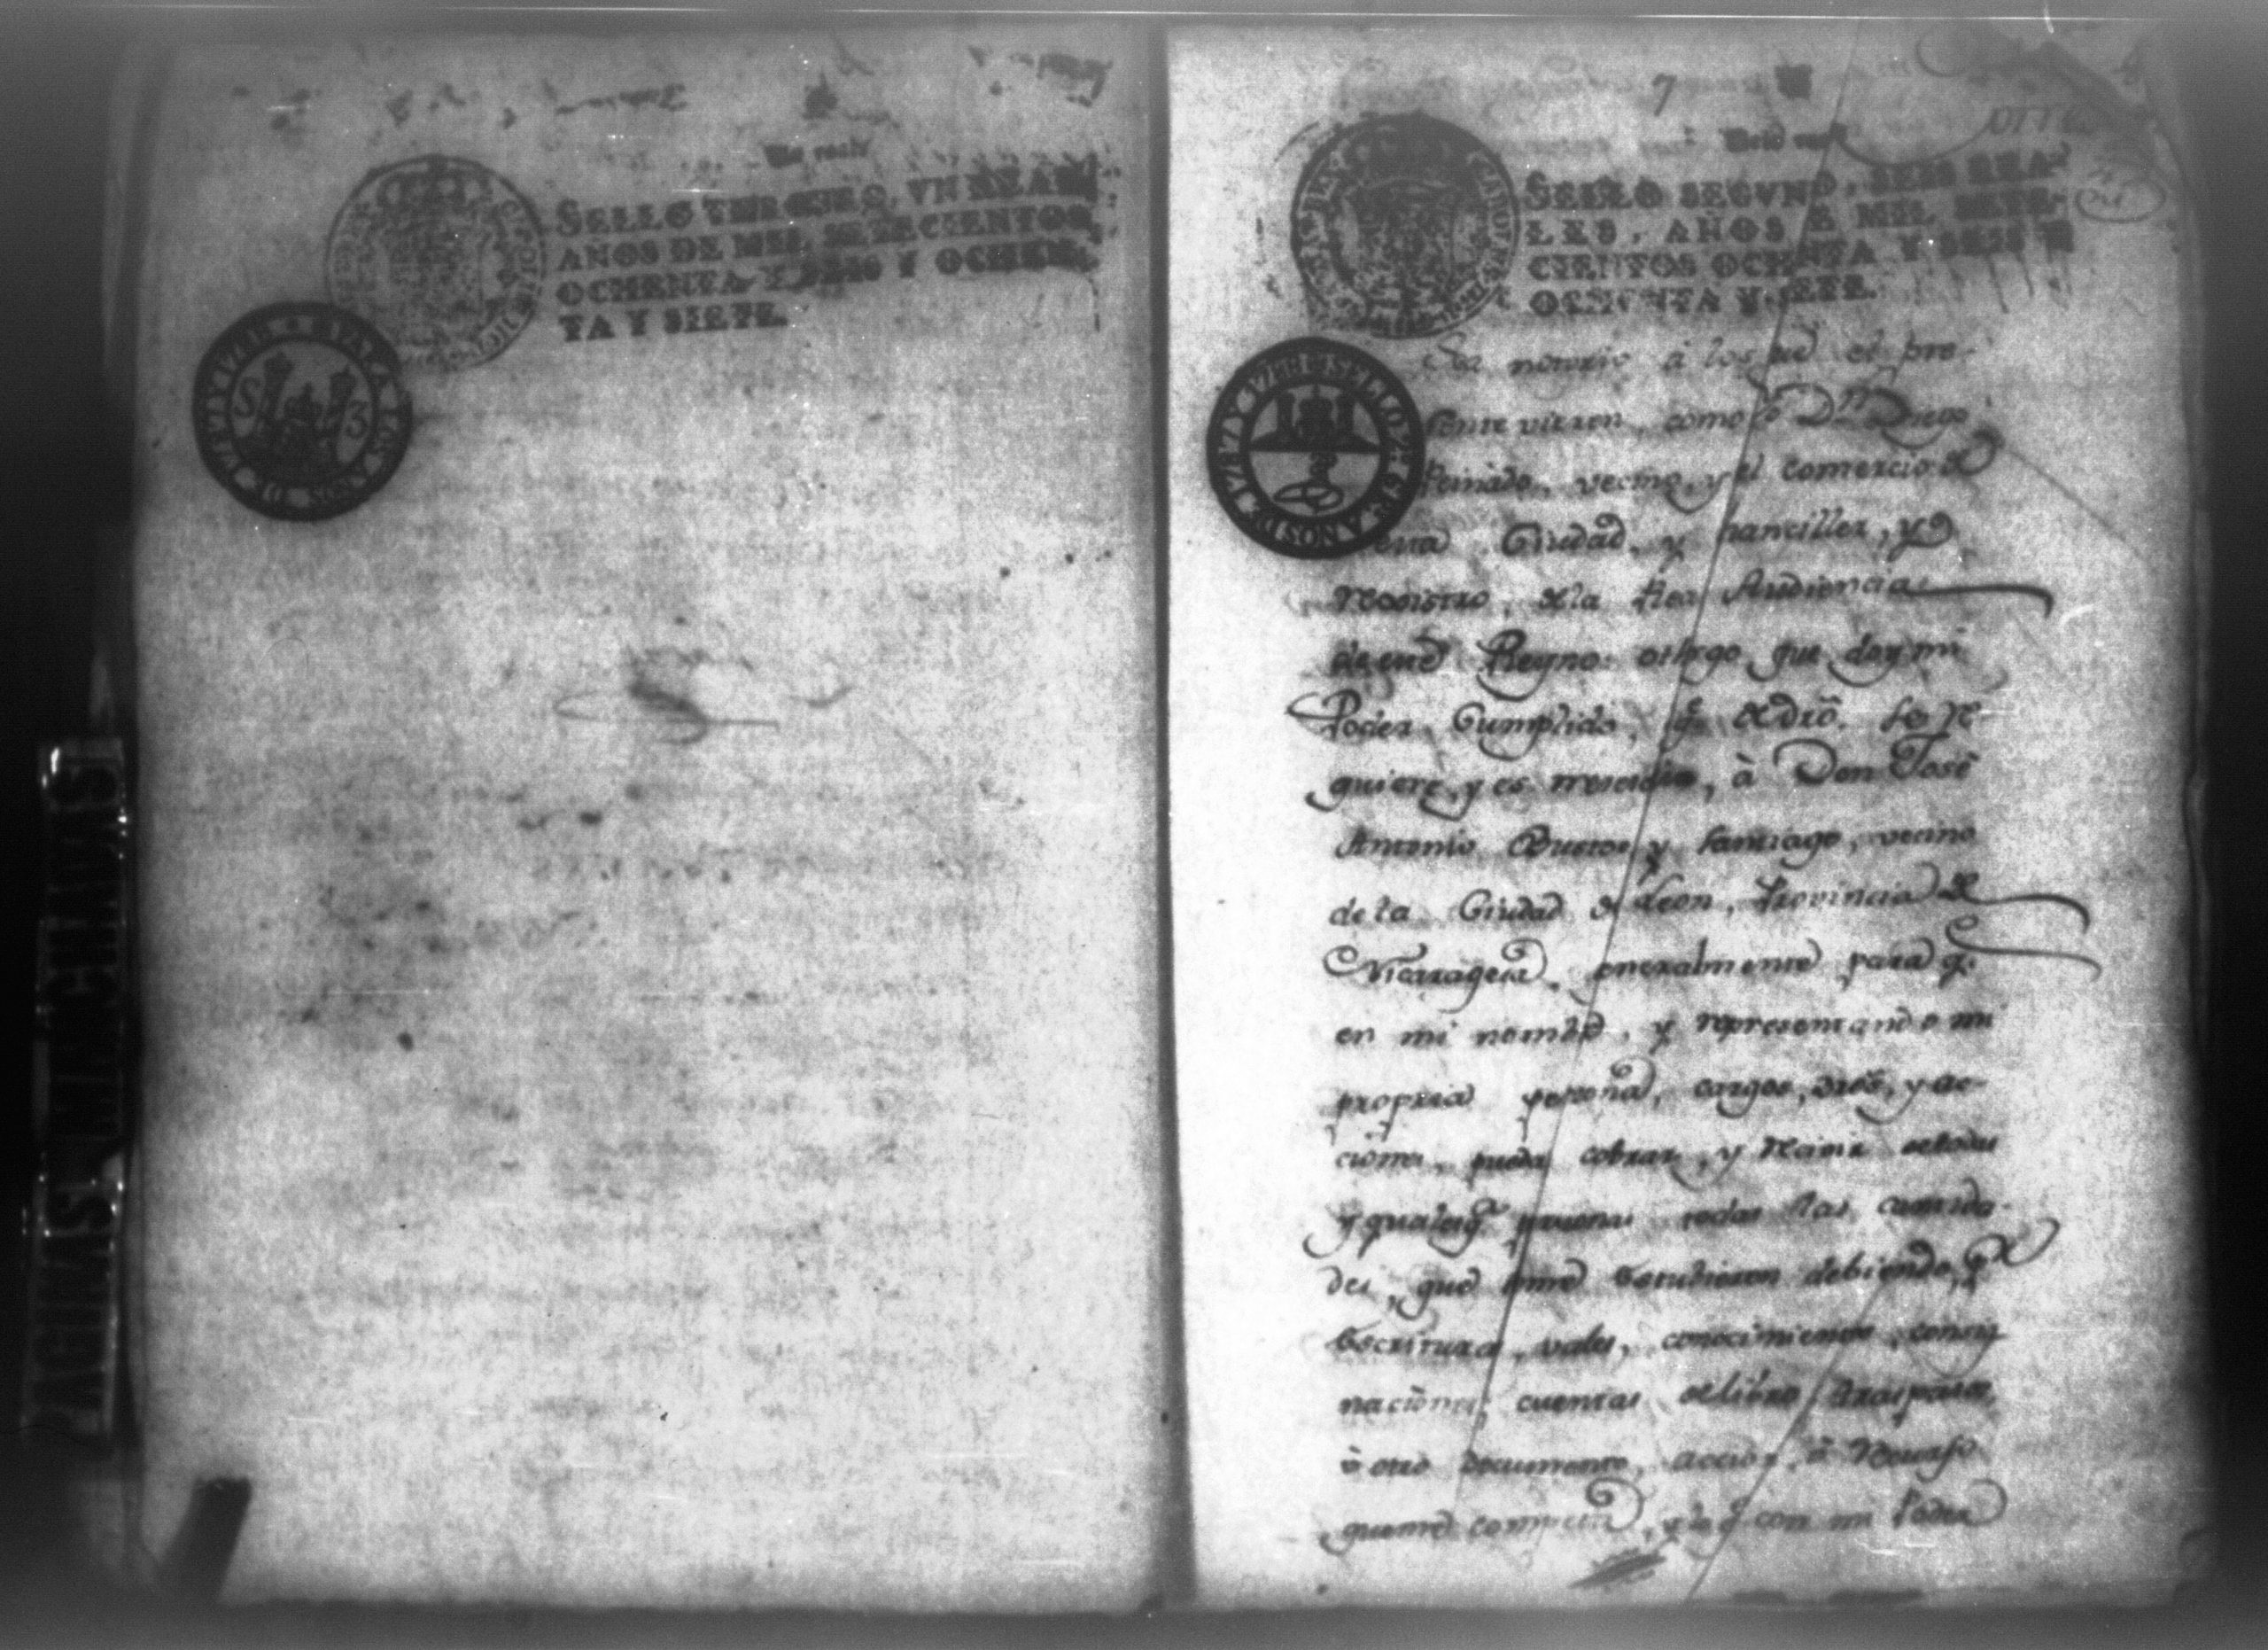 Un real
SELLO TERCERO, UN REAL
AÑOS DE MIL SETECIENTOS
OCHENTA Y SEIS Y OCHEN-
TA Y SIETE.
S 3
PARA LOS AÑOS DE 1787 Y 1788
7
SELLO SEGVNDO, SEIS REA-
LES, AÑOS DE MIL SETE-
CIENTOS OCHENTA Y SEIS Y
OCHENTA Y SIETE.
SELLO 2º 6 Rs AÑOS DE 1787 Y 1788
Sea notorio á los qe el pre-
sente vieren, como Yo Dn Diego
Peinado, vecino, y del comercio de
esta Ciudad, y Chanciller, y
Rexistro, de la Real Audiencia
de este Reyno: otorgo, que doy mi
Poder Cumplido, qe de dró. se re
quiere, y es necesario, à Don José
Antonio Bustos y Santiago, vecino
de la Ciudad de Leon, Provincia de
Nicaragua, generalmente para q.
en mi nombre, y representando mi
propria persona, cargos, dros, y ac-
ciones, pueda cobrar, y recivir de todas
y qualesqa personas todas las cantida-
des, que me estuvieren debiendo, pr
Escrituras, vales, conocimientos, consig
naciones, cuentas de libro, traspasos,
ò otro Documento, accion, ò recurso
que me competa, y qe con mi Poder